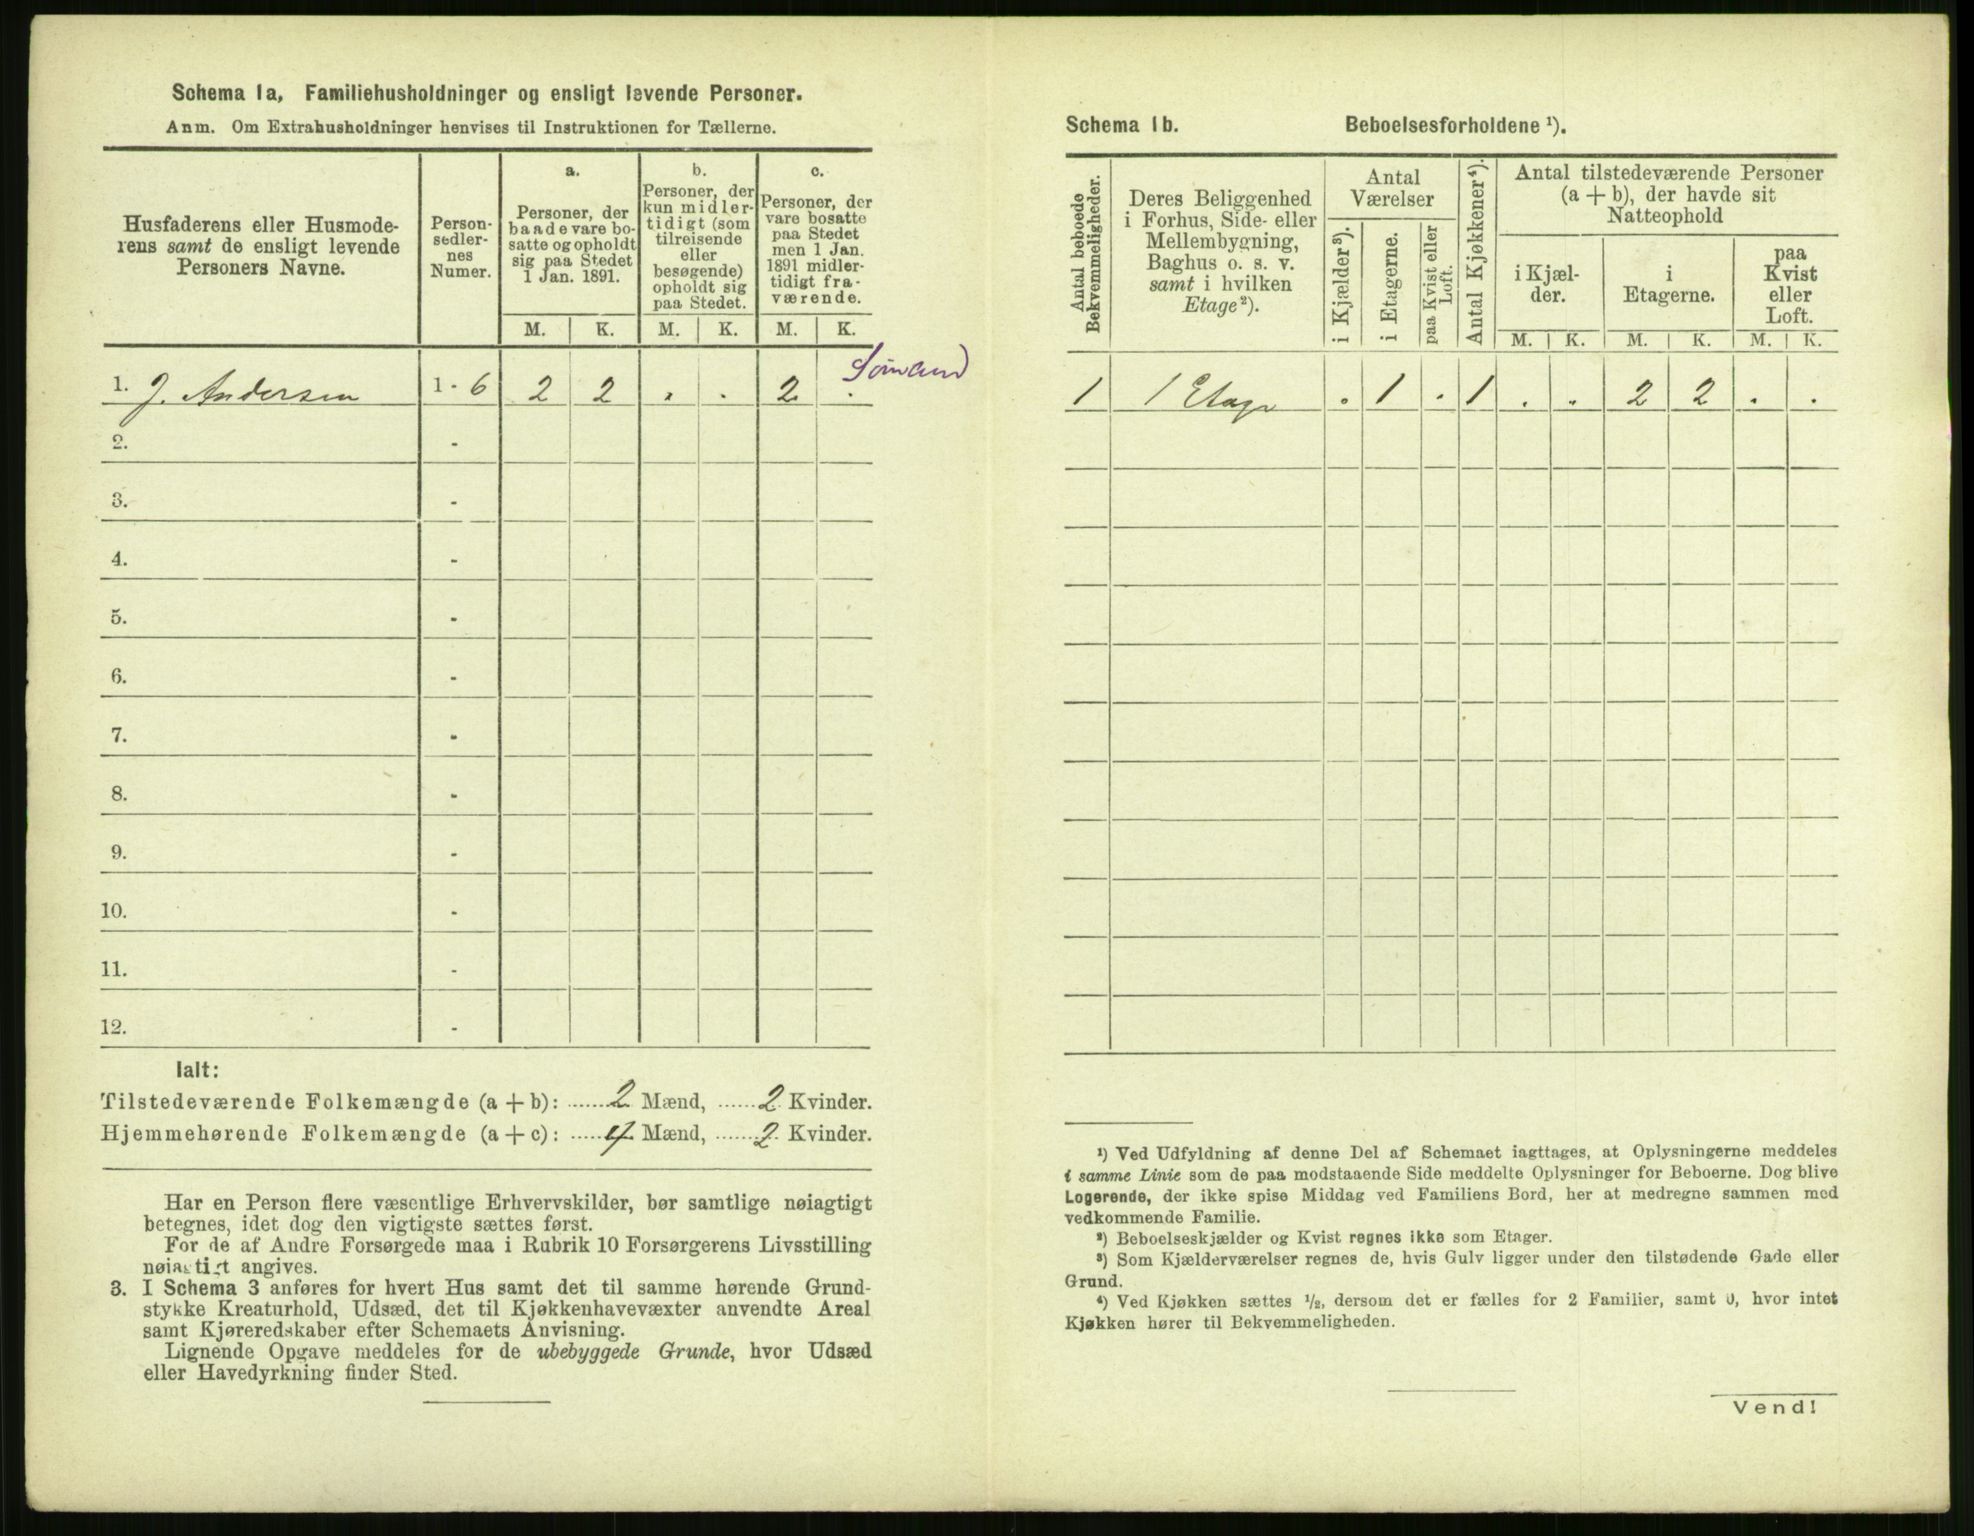 Schema 1a, Familiehusholdninger og ensligt levende Personer.
Anm. Om Extrahusholdninger henvises til Instruktionen for Tællerne.
Husfaderens eller Husmode-
rens samt de ensligt levende
Personers Navne.
Person-
sedler-
nes
Numer.
a.
Personer, der
baade vare bo-
satte og opholdt
sig paa Stedet
1 Jan. 1891.
b.
Personer, der
kun midler-
tidigt (som
tilreisende
eller
besøgende)
opholdt sig
paa Stedet.
c.
Personer, der
vare bosatte
paa Stedet
men 1 Jan.
1891 midler-
tidigt fra-
værende.
M. K. M. K. M. K.
Sømænd
1. J. Andersen 1 - 6 2 2 . . 2 .
2. -
3. -
4. -
5. -
6. -
7. -
8. -
9. -
10. -
11. -
12. -
Ialt:
Tilstedeværende Folkemængde (a + b): ......2 Mænd, ......2 Kvinder.
Hjemmehørende Folkemængde (a + c): ......4 Mænd, ......2 Kvinder.
Har en Person flere væsentlige Erhvervskilder, bør samtlige nøiagtigt
betegnes, idet dog den vigtigste sættes først.
For de af Andre Forsørgede maa i Rubrik 10 Forsørgerens Livsstilling
nøiagtigt angives.
3. I Schema 3 anføres for hvert Hus samt det til samme hørende Grund-
stykke Kreaturhold, Udsæd, det til Kjøkkenhavevæxter anvendte Areal
samt Kjøreredskaber efter Schemaets Anvisning.
Lignende Opgave meddeles for de ubebyggede Grunde, hvor Udsæd
eller Havedyrkning finder Sted.
Schema 1b. Beboelsesforholdene ¹).
Antal beboede
Bekvemmeligheder.
Deres Beliggenhed
i Forhus, Side- eller
Mellembygning,
Baghus o. s. v.
samt i hvilken
Etage²).
Antal
Værelser
i Kjælder³).
i Etagerne.
paa Kvist eller
Loft.
Antal Kjøkkener⁴).
Antal tilstedeværende Personer
(a + b), der havde sit
Natteophold
i Kjæl-
der.
i
Etagerne.
paa
Kvist
eller
Loft.
M. K. M. K. M. K.
1 1 Etage . 1 . 1 . . 2 2 . .
¹) Ved Udfyldning af denne Del af Schemaet iagttages, at Oplysningerne meddeles
i samme Linie som de paa modstaaende Side meddelte Oplysninger for Beboerne. Dog blive
Logerende, der ikke spise Middag ved Familiens Bord, her at medregne sammen med
vedkommende Familie.
²) Beboelseskjælder og Kvist regnes ikke som Etager.
³) Som Kjælderværelser regnes de, hvis Gulv ligger under den tilstødende Gade eller
Grund.
⁴) Ved Kjøkken sættes ½, dersom det er fælles for 2 Familier, samt 0, hvor intet
Kjøkken hører til Bekvemmeligheden.
Vend!